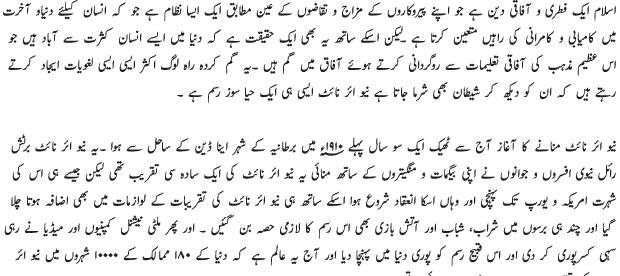 اسلام ایک فطری و آفاقی دین ہے جو اپنے پیروکاروں کے مزاج و تقاضوں کے عین مطابق ایک ایسا نظام ہے جو کہ انسان کیلئے دنیاو آخرت
میں کامیابی و کامرانی کی راہیں متعین کرتا ہے لیکن اسکے ساتھ یہ بھی ایک حقیقت ہے کہ دنیا میں ایسے انسان کثرت سے آباد ہیں جو
اس عظیم مذہب کی آفاقی تعلیمات سے روگردانی کرتے ہوئے آفاق میں گم ہیں ۔یہ گم کردہ راہ لوگ اکثر ایسی ایسی لغویات ایجاد کرتے
رہتے ہیں کہ ان کو دیکھ کر شیطان بھی شرما جاتا ہے نیو ائر نائٹ ایسی ہی ایک حیا سوز رسم ہے ۔
نیو ائر نائٹ منانے کا آغاز آج سے ٹھیک ایک سو سال پہلے ۱۹۱۰ء میں برطانیہ کے شہر اینا ڈین کے ساحل سے ہوا ۔یہ نیو ائر نائٹ برٹش
رائل نیوی افسروں و جوانوں نے اپنی بیگمات و منگیتروں کے ساتھ منائی یہ نیو ائر نائٹ کی ایک سادہ سی تقریب تھی لیکن جیسے ہی اس کی
شہرت امریکہ و یورپ تک پہنچی اور وہاں اسکا انعقاد شروع ہوا اسکے ساتھ ہی نیو ائر نائٹ کی تقریبات کے لوازمات میں بھی اضافہ ہوتا چلا
گیا اور چند ہی برسوں میں شراب، شباب اور آتش بازی بھی اس رسم کا لازمی حصہ بن گئیں ۔ اور پھر ملٹی نیشنل کمپنیوں اور میڈیا نے رہی
سہی کسرپوری کر دی اور اس قبیح رسم کو پوری دنیا میں پہنچا دیا اور آج یہ عالم ہے کہ دنیا کے ۱۸۰ ممالک کے ۱۰۰۰۰ شہروں میں نیو ائر